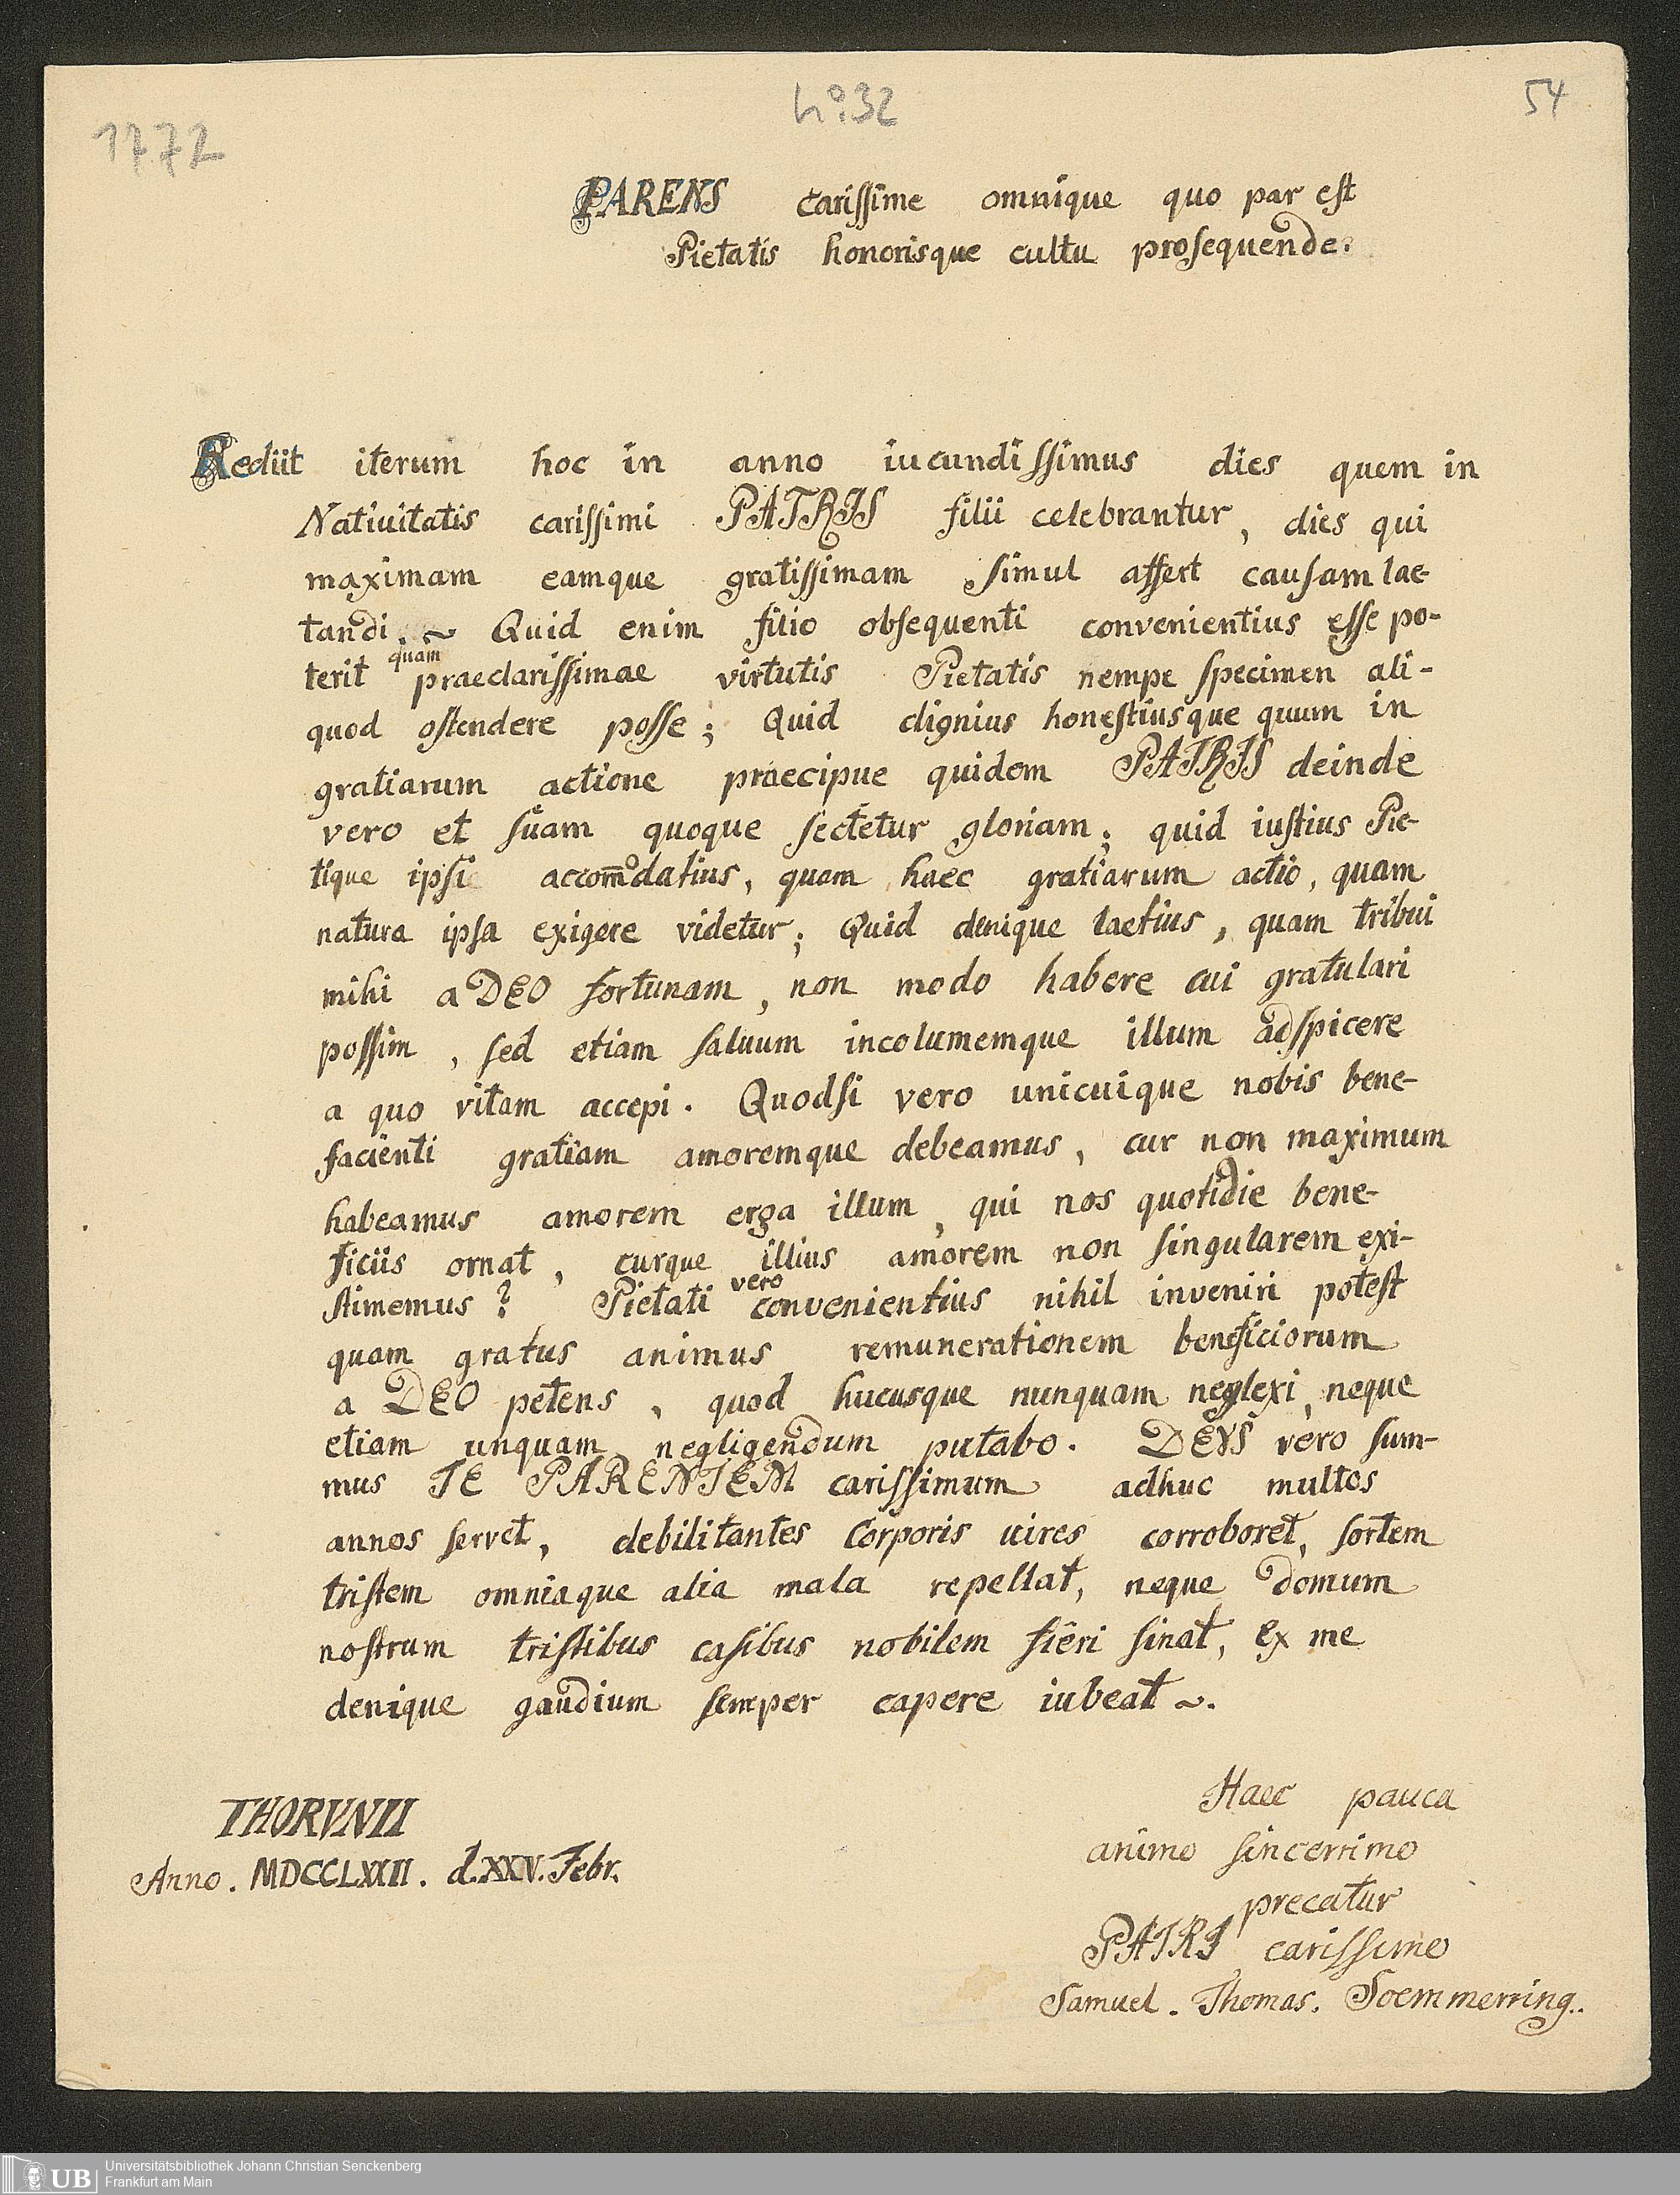 1772
no. 32
54
PARENS Carissime omnique quo par est
Pietatis honorisque cultu prosequende.
Rediit iterum hoc in anno iucundissimus dies quem in
Natiuitatis carissimi PATRIS filii celebrantur, dies qui
maximam eamque gratissimam simul affert causam lae-
tandi. ~ Quid enim filio obsequenti convenientius esse po-
quam
terit praeclarissimae virtutis Pietatis nempe specimen ali-
quod ostendere posse; Quid dignius honestiusque quum in
gratiarum actione praecipue quidem PATRIS deinde
vero et suam quoque sectetur gloriam; quid iustius Pie-
tique ipsi accommodatius, quam haec gratiarum actio, quam
natura ipsa exigere videtur; Quid denique laetius, quam tribui
mihi a DEO fortunam, non modo habere cui gratulari
possim, sed etiam saluum incolumemque illum adspicere
a quo vitam accepi. Quodsi vero unicuique nobis bene-
facienti gratiam amoremque debeamus, cur non maximum
habeamus amorem erga illum, qui nos quotidie bene-
ficiis ornat, curque illius amorem non singularem exi-
vero
stimemus? Pietati convenientius nihil inveniri potest
quam gratus animus remunerationem beneficiorum
a DEO petens, quod hucusque nunquam neglexi, neque
etiam unquam negligendum putabo. DEVS vero sum-
mus TE PARENTEM carissimum adhuc multos
annos servet, debilitantes Corporis uires corroboret, sortem
tristem omniaque alia mala repellat, neque domum
nostrum tristibus casibus nobilem fieri sinat, ex me
denique gaudium semper capere iubeat ~.
Haec pauca
animo sincerrimo
precatur
PATRI carissimo
Samuel. Thomas. Soemmerring..
THORVNII
Anno. MDCCLXXII. d. XXV. Febr.
UB
Universitätsbibliothek Johann Christian Senckenberg
Frankfurt am Main